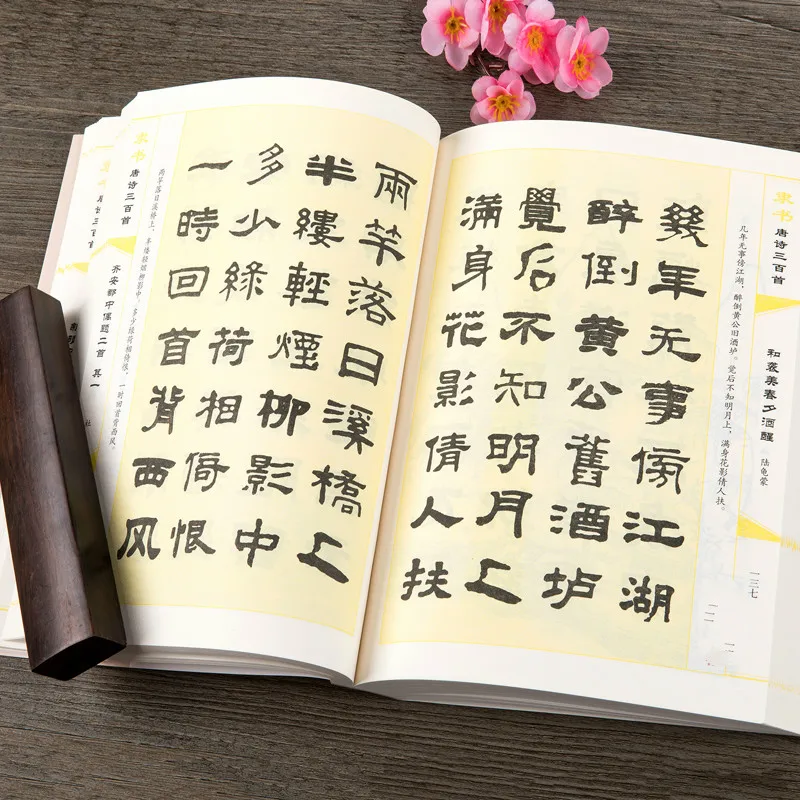 隶书
唐诗三百首
和袭美春夕酒醒
陆龟蒙
一三七
几年无事傍江湖，醉倒黄公旧酒垆。觉后不知明月上，满身花影倩人扶。
幾年无事傍江湖
醉倒黄公舊酒垆
覺后不知明月上
滿身花影倩人扶
兩竿落日溪橋上
半縷輕煙柳影中
多少綠荷相倚恨
一時回首背西风
两竿落日溪桥上，半缕轻烟柳影中。多少绿荷相倚恨，一时回首背西风。
隶书
唐诗三百首
齐安郡中偶题二首 其一
杜
唐诗三百首